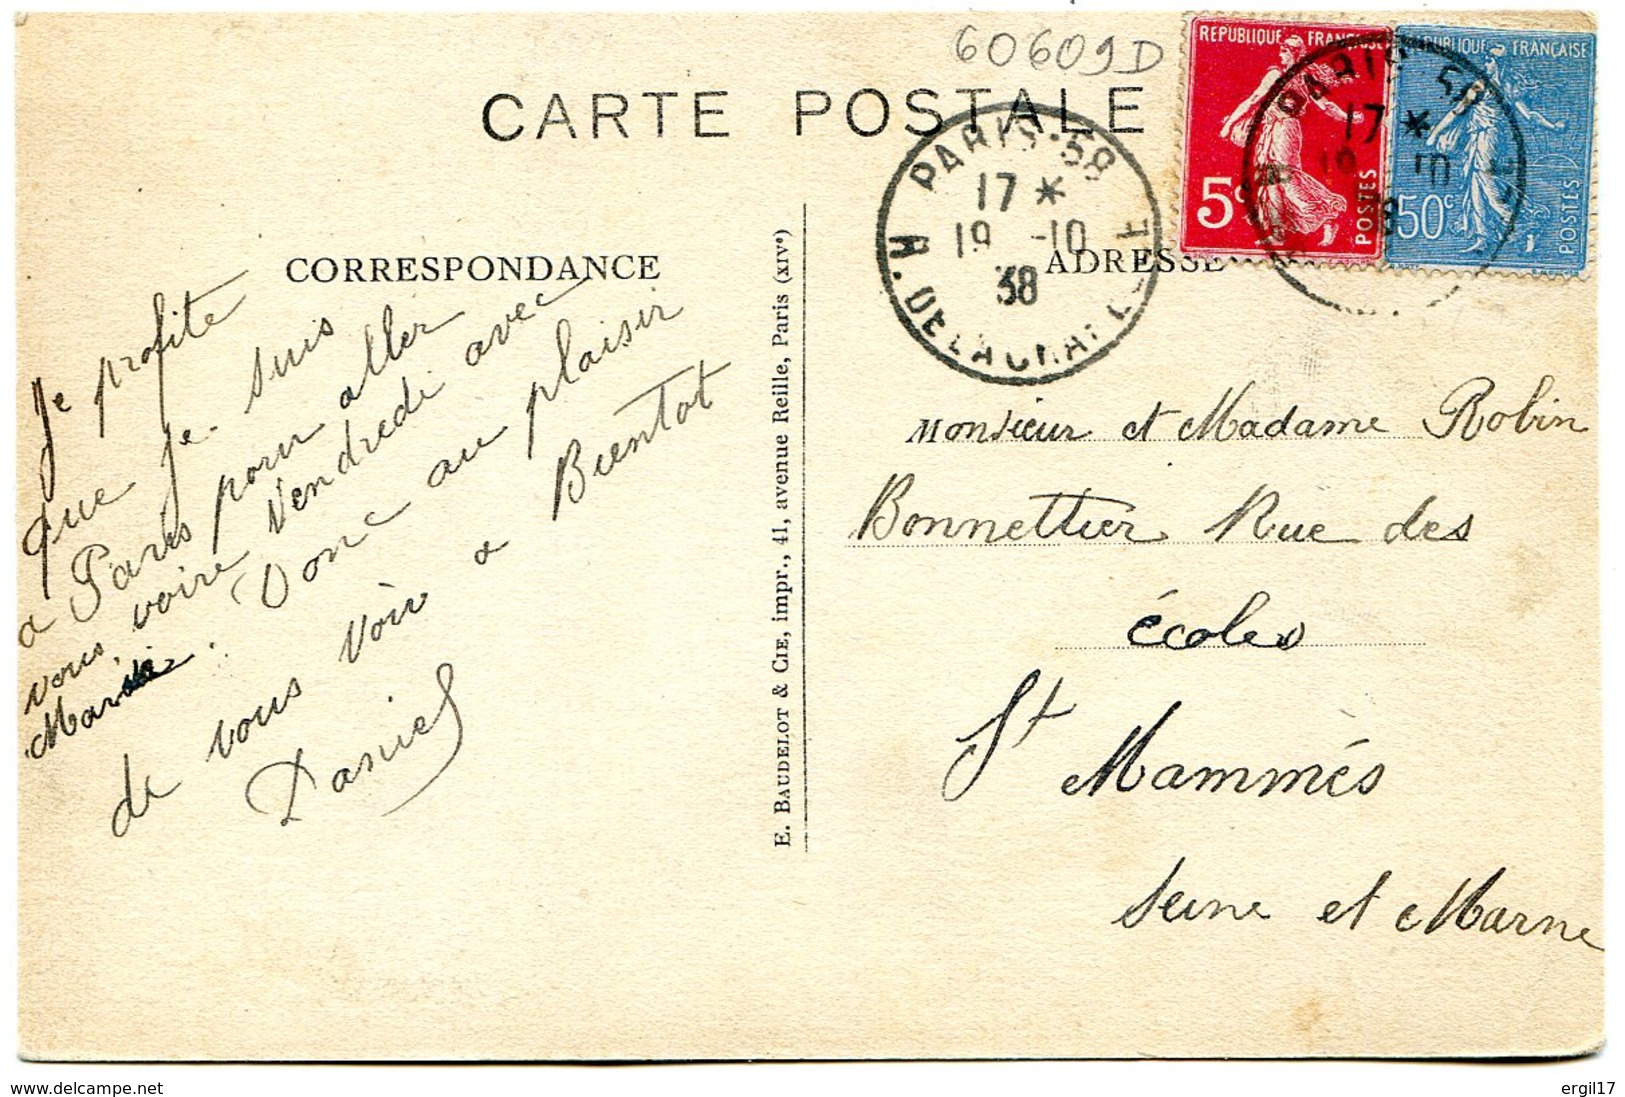 60609D
CARTE POSTALE
REPUBLIQUE FRANÇAISE
5c
POSTES
REPUBLIQUE FRANÇAISE
50c
POSTES
PARIS·58
17 *
19 -10
38
PARIS 58
17 *
19 10
38
CORRESPONDANCE
ADRESSE
Je profite
que je suis
a Paris pour aller
vous voire Vendredi avec
Donc au plaisir
de vous voir a Bientot
Daniel
E. BAUDELOT & CIE, impr., 41, avenue Reille, Paris (XIVe)
Monsieur et Madame Robin
Bonnettier Rue des
écoles
St Mammés
Seine et Marne
www.delcampe.net
ergil17